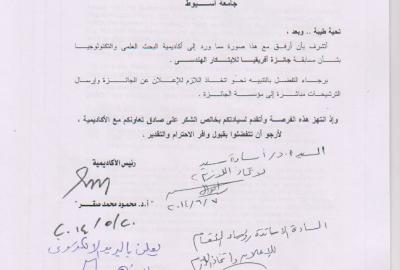 جامعة أسيوط
تحية طيبة .. وبعد ،
أتشرف بأن أرفق مع هذا صورة مما ورد إلى أكاديمية البحث العلمى والتكنولوجيا
بشأن مسابقة جائزة أفريقيا للابتكار الهندسى .
برجاء التفضل بالتنبيه نحو اتخاذ اللازم للإعلان عن الجائزة وإرسال
الترشيحات مباشرة إلى مؤسسة الجائزة .
وإذ انتهز هذه الفرصة وأتقدم لسيادتكم بخالص الشكر على صادق تعاونكم مع الأكاديمية ،
لأرجو أن تتفضلوا بقبول وافر الاحترام والتقدير ،
رئيس الأكاديمية
السيد أ.د/ أسامة سيد
"أ.د. محمود محمد صقر"
٢٠١٤/٦/٧
السادة الأساتذة رؤساء الأقسام
للإعلام واتخاذ اللازم
يعلن بالبريد الالكترونى